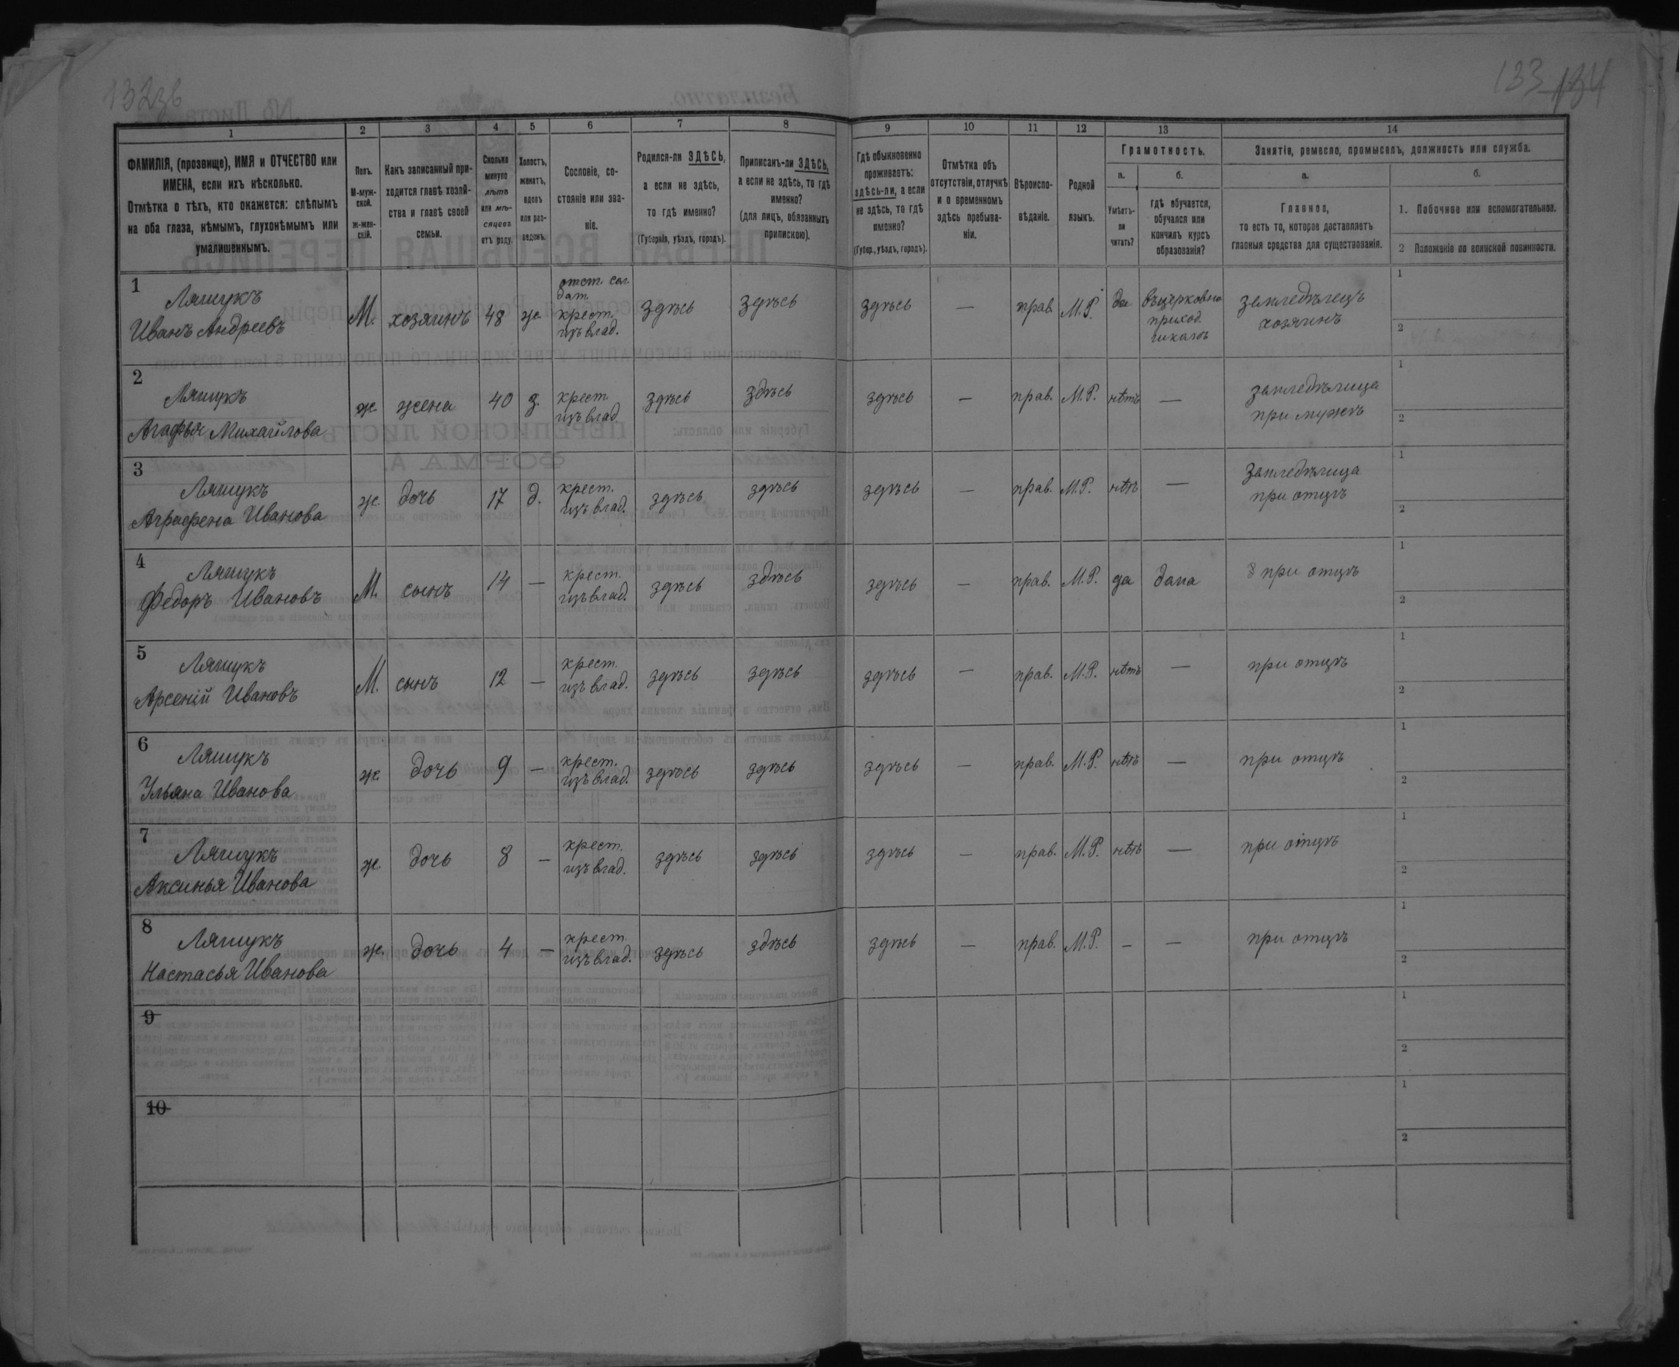 133
134
1 2 3 4 5 6 7 8 9 10 11 12 13 14
ФАМИЛІЯ, (прозвище), ИМЯ и ОТЧЕСТВО или
ИМЕНА, если ихъ нѣсколько.
Отмѣтка о тѣхъ, кто окажется: слѣпымъ
на оба глаза, нѣмымъ, глухонѣмымъ или
умалишеннымъ.
Полъ.
М-муж-
ской.
ж-жен-
скій.
Какъ записанный при-
ходится главѣ хозяй-
ства и главѣ своей
семьи.
Сколько
минуло
лѣтъ
или мѣ-
сяцевъ
отъ роду.
Холостъ,
женатъ,
вдовъ
или раз-
веденъ.
Сословіе, со-
стояніе или зва-
ніе.
Родился-ли ЗДѢСЬ,
а если не здѣсь,
то гдѣ именно?
(Губернія, уѣздъ, городъ).
Приписанъ-ли ЗДѢСЬ,
а если не здѣсь, то гдѣ
именно?
(для лицъ, обязанныхъ
припискою).
Гдѣ обыкновенно
проживаетъ:
здѣсь-ли, а если
не здѣсь, то гдѣ
именно?
(Губер., уѣздъ, городъ).
Отмѣтка объ
отсутствіи, отлучкѣ
и о временномъ
здѣсь пребыва-
ніи.
Вѣроиспо-
вѣданіе.
Родной
языкъ.
Грамотность.
а.
Умѣетъ-
ли
читать?
б.
гдѣ обучается,
обучался или
кончилъ курсъ
образованія?
Занятіе, ремесло, промыселъ, должность или служба.
а.
Главное,
то есть то, которое доставляетъ
главныя средства для существованія.
б.
1. Побочное или вспомогательное.
2 Положеніе по воинской повинности.
1
Ляшукъ
Иванъ Андреевъ
М. хозяинъ 48 ж.
отст. сол
дат.
крест.
изъ влад.
здѣсь здѣсь здѣсь — прав. М.Р. да
въ церковно
приход.
школѣ
земледѣлецъ
хозяинъ
1
2
2
Ляшукъ
Агафья Михайлова
ж. жена 40 з.
крест
изъ влад.
здѣсь здѣсь здѣсь — прав. М.Р. нѣтъ —
земледѣлица
при мужѣ
1
2
3
Ляшукъ
Аграфена Иванова
ж дочь 17 д.
крест.
изъ влад.
здѣсь здѣсь здѣсь — прав. М.Р. нѣтъ —
земледѣлица
при отцѣ
1
2
4
Ляшукъ
Федоръ Ивановъ
М. сынъ 14 —
крест.
изъ влад.
здѣсь здѣсь здѣсь — прав. М.Р. да дома
при отцѣ
1
2
5
Ляшукъ
Арсеній Ивановъ
М. сынъ 12 —
крест.
изъ влад.
здѣсь здѣсь здѣсь — прав. М.Р. нѣтъ —
при отцѣ
1
2
6
Ляшукъ
Ульяна Иванова
ж. дочь 9 —
крест.
изъ влад.
здѣсь здѣсь здѣсь — прав. М.Р. нѣтъ —
при отцѣ
1
2
7
Ляшукъ
Аксинья Иванова
ж дочь 8 —
крест.
изъ влад.
здѣсь здѣсь здѣсь — прав. М.Р. нѣтъ —
при отцѣ
1
2
8
Ляшукъ
Настасья Иванова
ж. дочь 4 —
крест
изъ влад.
здѣсь здѣсь здѣсь — прав. М.Р. — —
при отцѣ
1
2
9
1
2
10
1
2